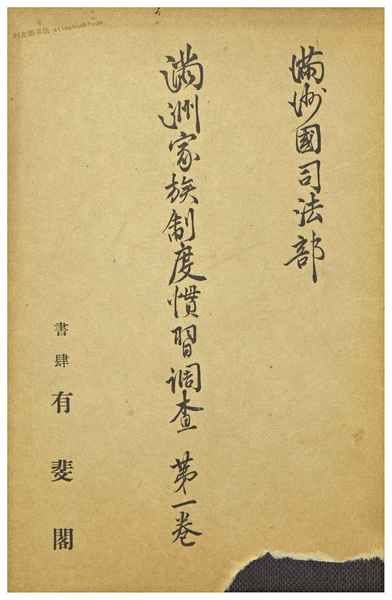 滿洲國司法部
滿洲家族制度慣習調查 第一卷
書肆 有斐閣